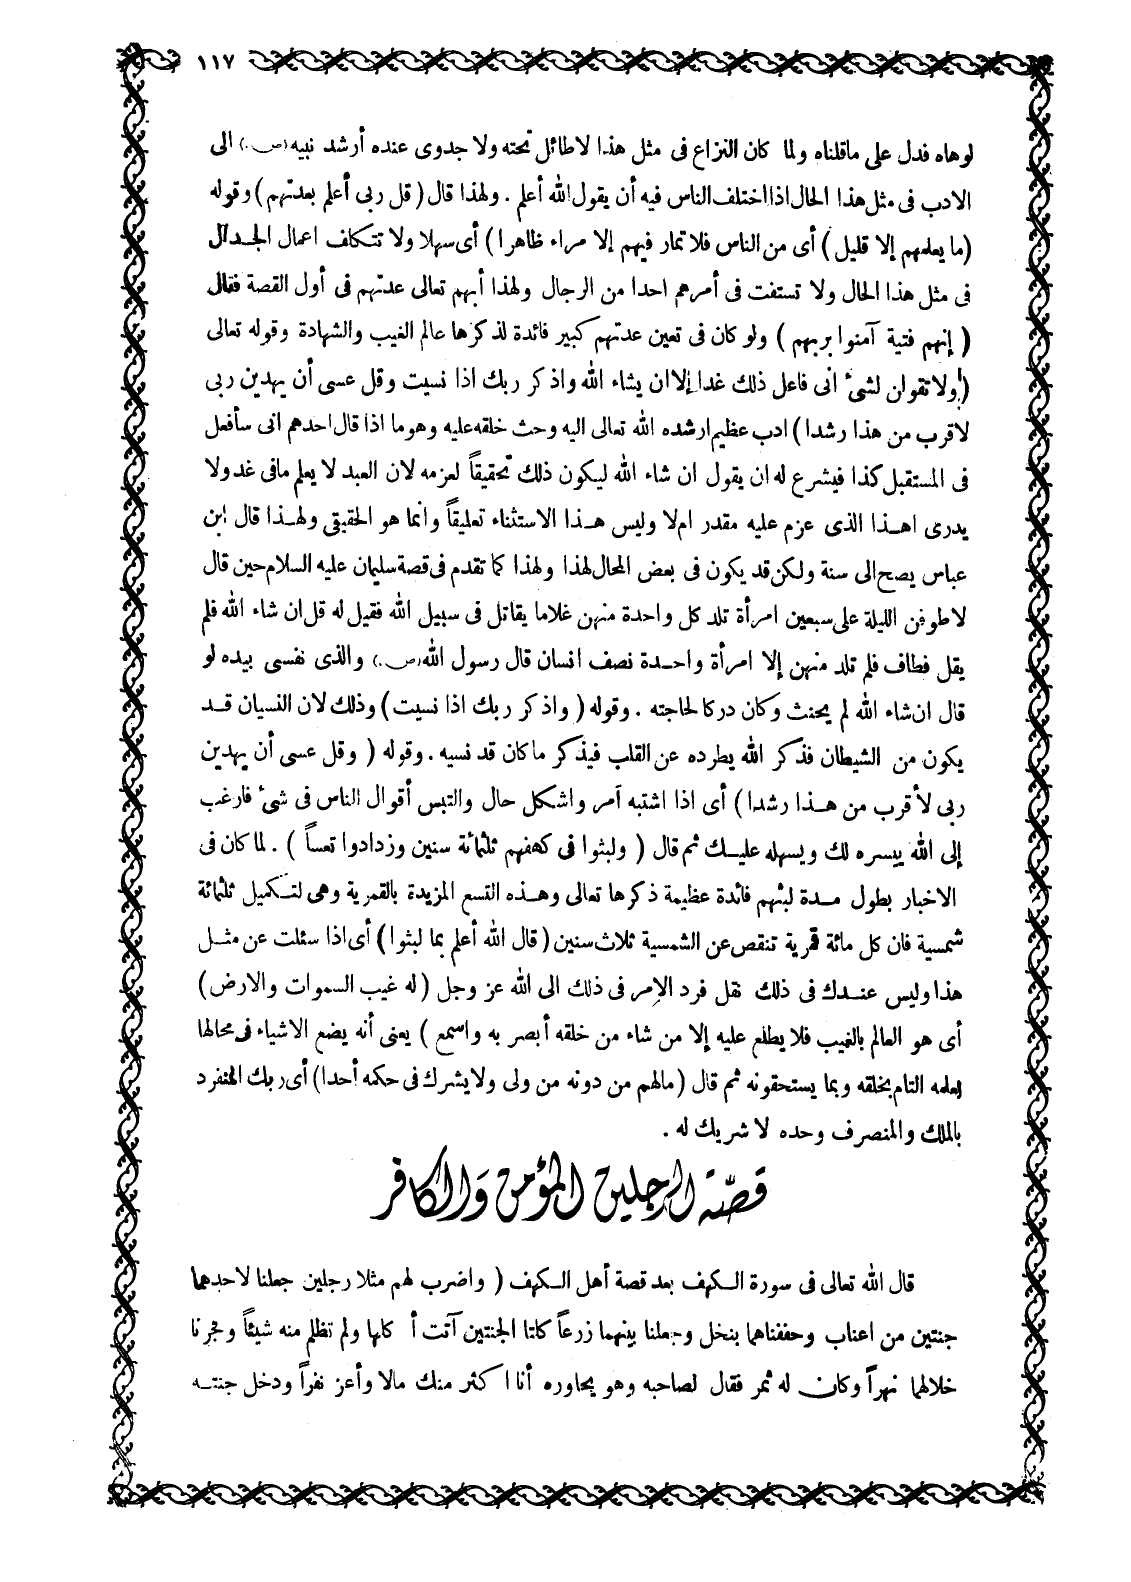 ١١٧
لوهاه فدل على ماقلناه ولما كان النزاع فى مثل هذا لاطائل تحته ولا جدوى عنده أرشد نبيه (ص.) الى
الادب فى مثل هذا الحال اذا اختلف الناس فيه أن يقول الله أعلم . ولهذا قال ( قل ربى أعلم بعدتهم ) وقوله
( ما يعلمهم إلا قليل ) أى من الناس فلا تمار فيهم إلا مراء ظاهرا ) أى سهلا ولا تتكلف اعمال الجدال
فى مثل هذا الحال ولا تستفت فى أمرهم احدا من الرجال ولهذا أبهم تعالى عدتهم فى أول القصة فقال
( إنهم فتية آمنوا بربهم ) ولو كان فى تعين عدتهم كبير فائدة لذكرها عالم الغيب والشهادة وقوله تعالى
( ولا تقولن لشئ انى فاعل ذلك غدا إلا ان يشاء الله واذكر ربك اذا نسيت وقل عسى أن يهدين ربى
لاقرب من هذا رشدا ) ادب عظيم ارشده الله تعالى اليه وحث خلقه عليه وهو ما اذا قال احدهم انى سأفعل
فى المستقبل كذا فيشرع له ان يقول ان شاء الله ليكون ذلك تحقيقاً لعزمه لان العبد لا يعلم مافى غد ولا
يدرى اهـذا الذى عزم عليه مقدر ام لا وليس هـذا الاستثناء تعليقاً وانما هو الحقيقى ولهـذا قال ابن
عباس يصح الى سنة ولكن قد يكون فى بعض المحال لهذا ولهذا كما تقدم فى قصة سليمان عليه السلام حين قال
لاطوفن الليلة على سبعين امرأة تلد كل واحدة منهن غلاما يقاتل فى سبيل الله فقيل له قل ان شاء الله فلم
يقل فطاف فلم تلد منهن إلا امرأة واحـدة نصف انسان قال رسول الله (ص.) والذى نفسى بيده لو
قال ان شاء الله لم يحنث وكان دركا لحاجته . وقوله ( واذكر ربك اذا نسيت ) وذلك لان النسيان قـد
يكون من الشيطان فذكر الله يطرده عن القلب فيذكر ما كان قد نسيه . وقوله ( وقل عسى أن يهدين
ربى لأقرب من هـذا رشدا ) أى اذا اشتبه آمر واشكل حال والتبس أقوال الناس فى شئ فارغب
إلى الله ييسره لك ويسهله عليـك ثم قال ( ولبثوا فى كهفهم ثلثمائة سنين وزدادوا تعساً ) . لما كان فى
الاخبار بطول مـدة لبثهم فائدة عظيمة ذكرها تعالى وهـذه التسع المزيدة بالقمرية وهى لتـكميل ثلثمائة
شمسية فان كل مائة قمرية تنقص عن الشمسية ثلاث سنين ( قال الله أعلم بما لبثوا ) أى اذا سئلت عن مثـل
هذا وليس عنـدك فى ذلك نقل فرد الإمر فى ذلك الى الله عز وجل ( له غيب السموات والارض )
أى هو العالم بالغيب فلا يطلع عليه إلا من شاء من خلقه أبصر به واسمع ) يعنى أنه يضع الاشياء فى محالها
لعلمه التام بخلقه وبما يستحقونه ثم قال ( مالهم من دونه من ولى ولا يشرك فى حكمه أحدا ) أى ربك المنفرد
بالملك والمنصرف وحده لا شريك له .
قصّة الرجلين المؤمن وَالكافر
قال الله تعالى فى سورة الـكهف بعد قصة أهل الـكهف ( واضرب لهم مثلا رجلين جعلنا لاحدهما
جنتين من اعناب وحففناهما بنخل وجعلنا بينهما زرعاً كلتا الجنتين آتت أكلها ولم تظلم منه شيئاً وفجرنا
خلالهما نهراً وكان له ثمر فقال لصاحبه وهو يحاوره أنا اكثر منك مالا وأعز نفراً ودخل جنتـه